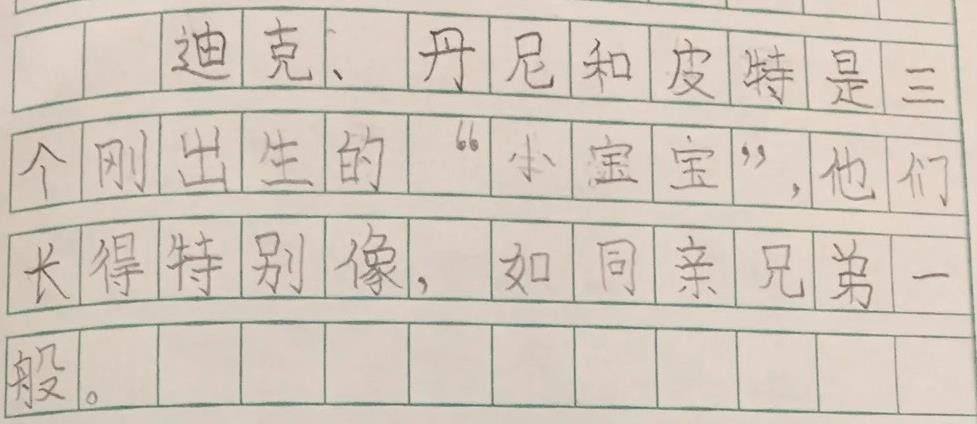 迪克、丹尼和皮特是三
个刚出生的“小宝宝”,他们
长得特别像,如同亲兄弟一
般。